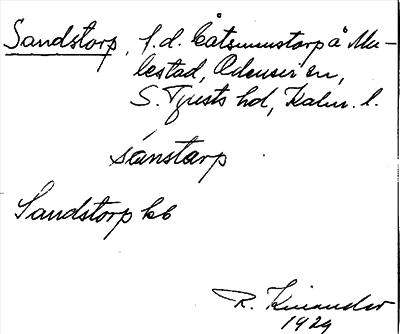 Sandstorp, f.d. Båtsmanstorp å Må-
lestad, Odensvi sn,
S. Tjusts hd, Kalm. l.
sánstarp
Sandstorp kb
R. Kinander
1929